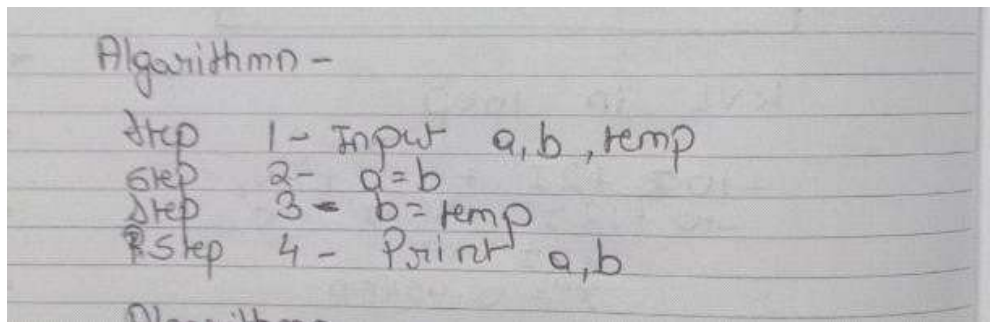 Algorithmn -
Step 1 - Input a, b, temp
Step 2 - a = b
Step 3 - b = temp
Step 4 - Print a, b